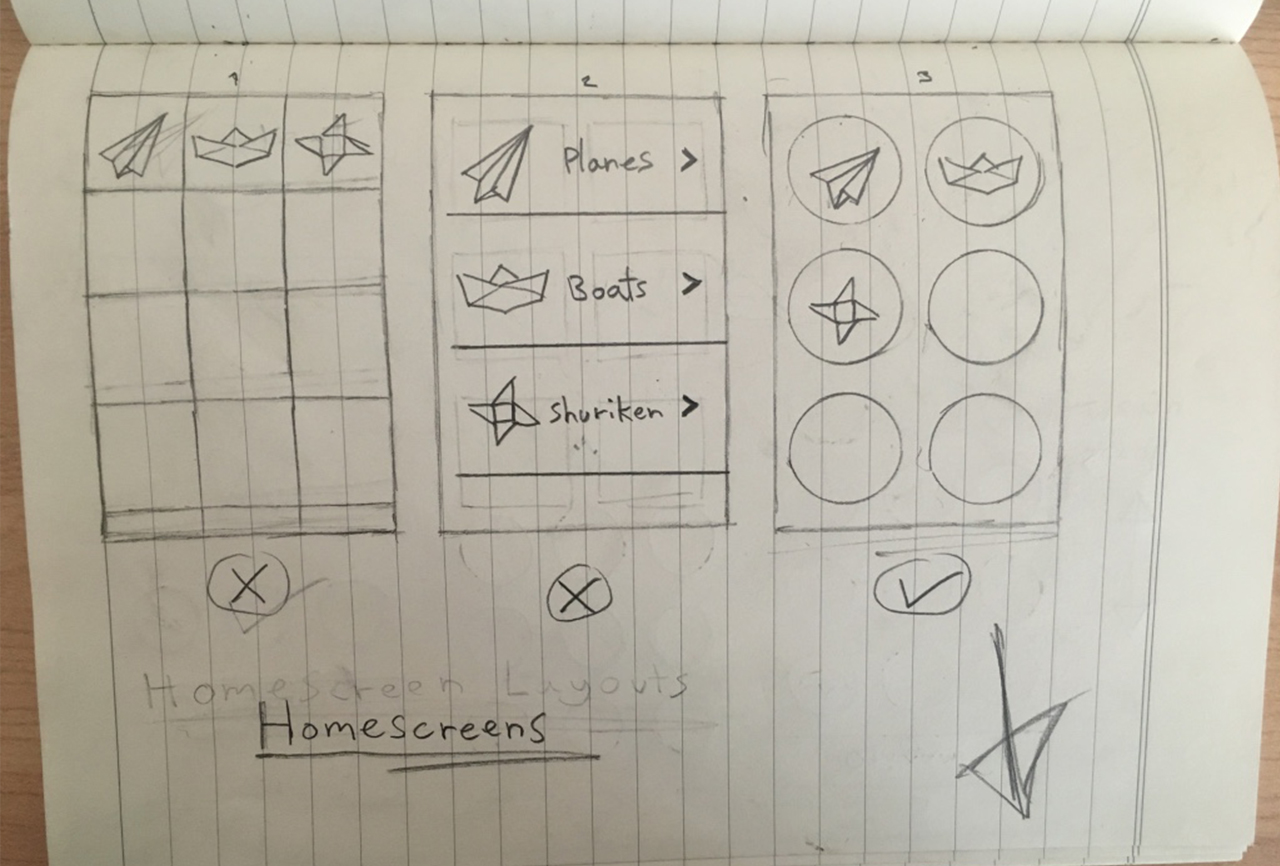 1
2
3
Planes >
Boats >
Shuriken >
Homescreen Layouts
Homescreens